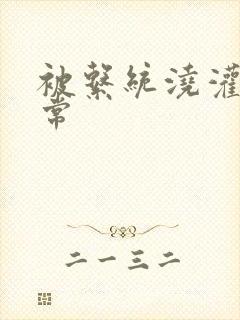 被系統澆灌
常
二一三二